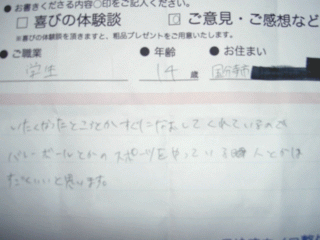 お書きくださる内容に○印をご記入ください。
□ 喜びの体験談 □ ご意見・ご感想など
※喜びの体験談を頂きますと、粗品プレゼントをご用意いたします。
●ご職業 ●年齢 ●お住まい
学生 14 歳
いたくなったところとかすぐになおしてくれているのを
バレーボールとかのスポーツをやっている人とかは
だといいと思います。